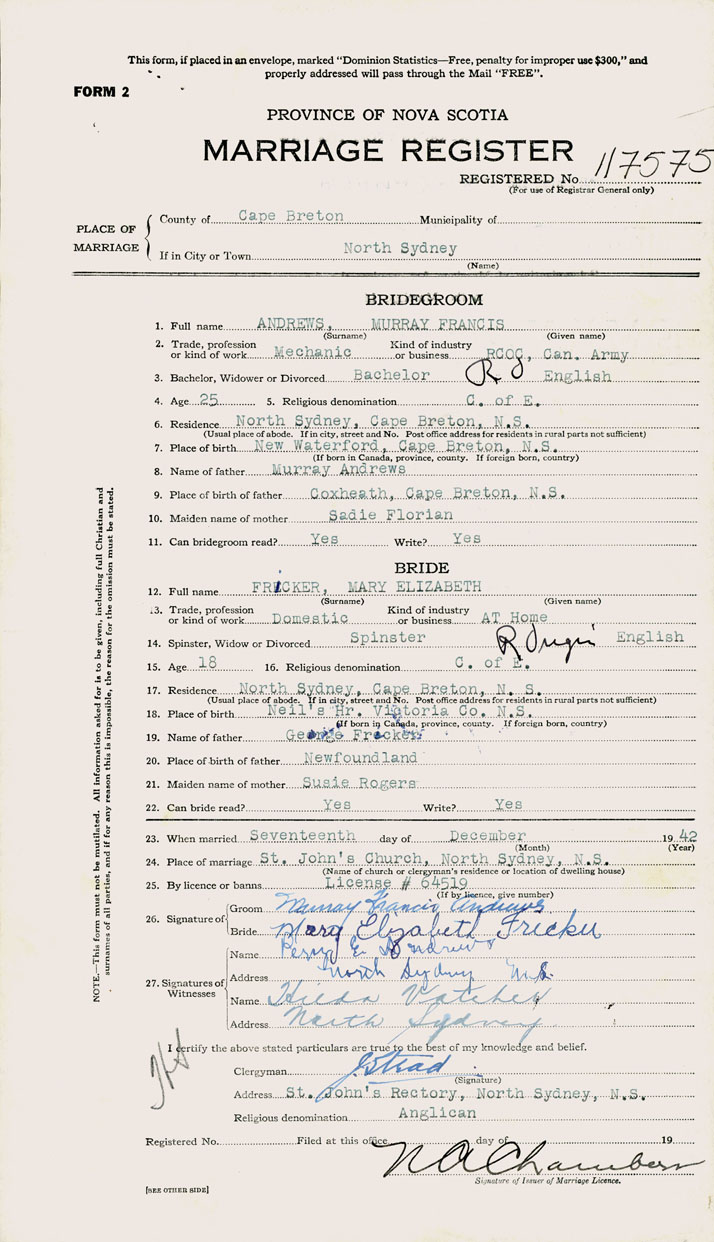 This form, if placed in an envelope, marked "Dominion Statistics—Free, penalty for improper use $300," and
properly addressed will pass through the Mail "FREE".
FORM 2
PROVINCE OF NOVA SCOTIA
MARRIAGE REGISTER
REGISTERED No. 117575
(For use of Registrar General only)
PLACE OF MARRIAGE
County of Cape Breton Municipality of
If in City or Town North Sydney
(Name)
BRIDEGROOM
1. Full name ANDREWS, MURRAY FRANCIS
(Surname) (Given name)
2. Trade, profession or kind of work Mechanic Kind of industry or business RCOC, Can. Army
3. Bachelor, Widower or Divorced Bachelor R English
4. Age 25 5. Religious denomination C. of E.
6. Residence North Sydney, Cape Breton, N.S.
(Usual place of abode. If in city, street and No. Post office address for residents in rural parts not sufficient)
7. Place of birth New Waterford, Cape Breton, N.S.
(If born in Canada, province, county. If foreign born, country)
8. Name of father Murray Andrews
9. Place of birth of father Coxheath, Cape Breton, N.S.
10. Maiden name of mother Sadie Florian
11. Can bridegroom read? Yes Write? Yes
BRIDE
12. Full name FRICKER, MARY ELIZABETH
(Surname) (Given name)
13. Trade, profession or kind of work Domestic Kind of industry or business AT Home
14. Spinster, Widow or Divorced Spinster R English
15. Age 18 16. Religious denomination C. of E.
17. Residence North Sydney, Cape Breton, N. S.
(Usual place of abode. If in city, street and No. Post office address for residents in rural parts not sufficient)
18. Place of birth Neil's Hr. Victoria Co. N.S.
(If born in Canada, province, county. If foreign born, country)
19. Name of father George Fricker
20. Place of birth of father Newfoundland
21. Maiden name of mother Susie Rogers
22. Can bride read? Yes Write? Yes
23. When married Seventeenth day of December 1942
(Month) (Year)
24. Place of marriage St. John's Church, North Sydney, N.S.
(Name of church or clergyman's residence or location of dwelling house)
25. By licence or banns License # 64519
(If by licence, give number)
26. Signature of
Groom Murray Francis Andrews
Bride Mary Elizabeth Fricker
27. Signatures of Witnesses
Name Percy E. Andrews
Address North Sydney N.S.
Name Hilda Vatcher
Address North Sydney
I certify the above stated particulars are true to the best of my knowledge and belief.
Clergyman
(Signature)
Address St. John's Rectory, North Sydney, N.S.
Religious denomination Anglican
Registered No. Filed at this office day of 19
N A Chambers
Signature of Issuer of Marriage Licence.
[SEE OTHER SIDE]
NOTE.—This form must not be mutilated. All information asked for is to be given, including full Christian and
surnames of all parties, and if for any reason this is impossible, the reason for the omission must be stated.